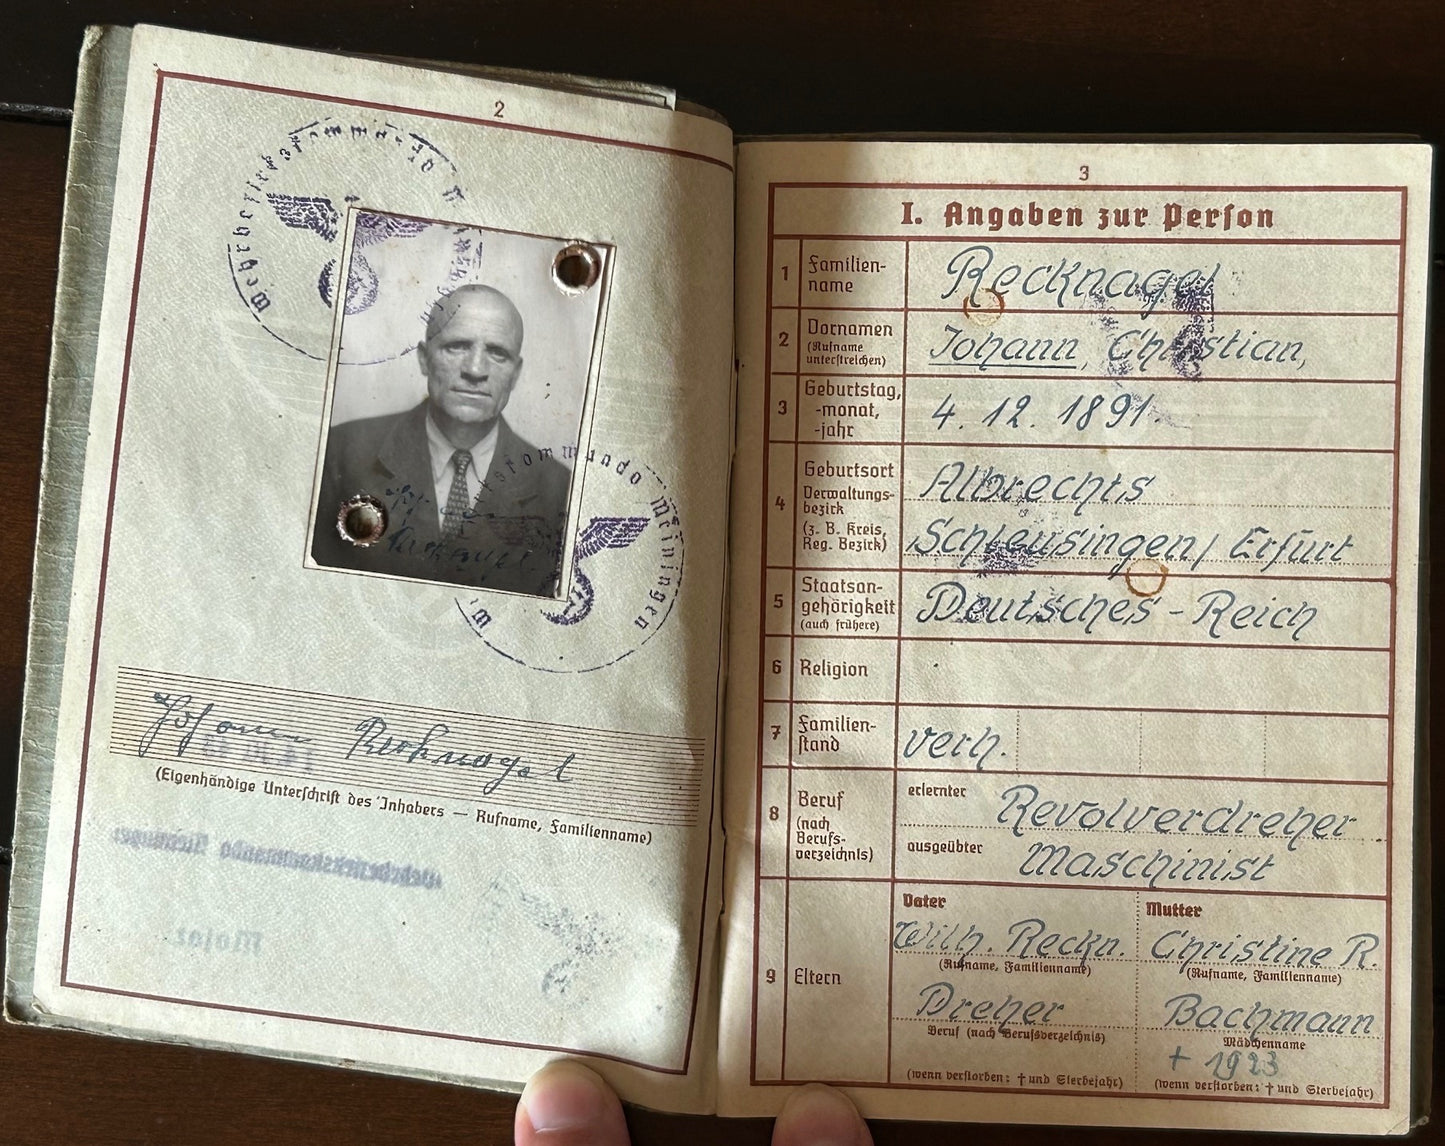 2
Wehrbezirkskommando
Wehrbezirkskommando Meiningen
Johann Recknagel
(Eigenhändige Unterschrift des Inhabers — Rufname, Familienname)
Wehrbezirkskommando Meiningen
Major
3
I. Angaben zur Person
1 Familien-
name
Recknagel
2 Vornamen
(Rufname
unterstreichen)
Johann, Christian,
3 Geburtstag,
-monat,
-jahr
4. 12. 1891.
4 Geburtsort
Verwaltungs-
bezirk
(z. B. Kreis,
Reg. Bezirk)
Albrechts
Schleusingen/ Erfurt
5 Staatsan-
gehörigkeit
(auch frühere)
Deutsches-Reich
6 Religion
7 Familien-
stand
verh.
8 Beruf
(nach
Berufs-
verzeichnis)
erlernter Revolverdreher
ausgeübter Maschinist
9 Eltern
Vater
Wilh. Reckn.
(Rufname, Familienname)
Dreher
Beruf (nach Berufsverzeichnis)
(wenn verstorben: † und Sterbejahr)
Mutter
Christine R.
(Rufname, Familienname)
Bachmann
Mädchenname
† 1923
(wenn verstorben: † und Sterbejahr)